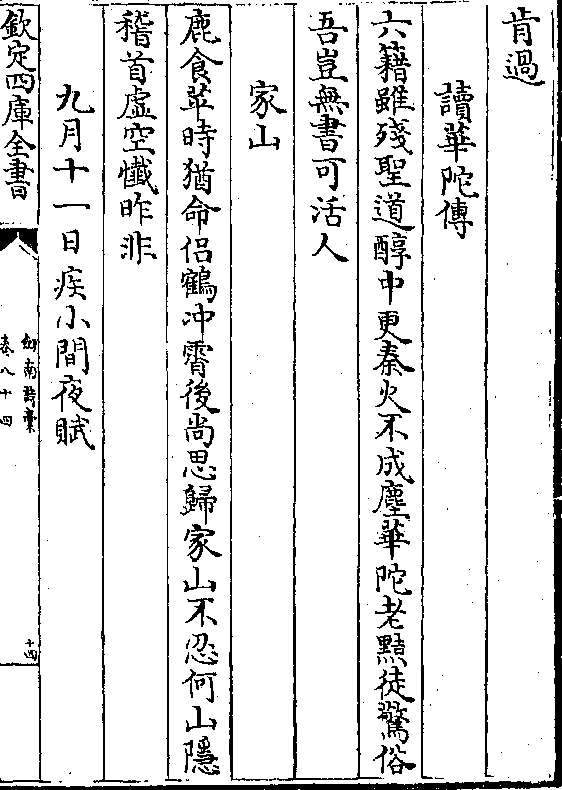 肯過
讀華陀傳
六籍雖殘聖道醇中更秦火不成塵華陀老黠徒驚俗
吾豈無書可活人
家山
鹿食苹時猶命侣鶴冲霄後尚思歸家山不忍何山隱
稽首虚空懺昨非
九月十一日疾小間夜賦
欽定四庫全書
劍南詩稾
卷八十四
十四